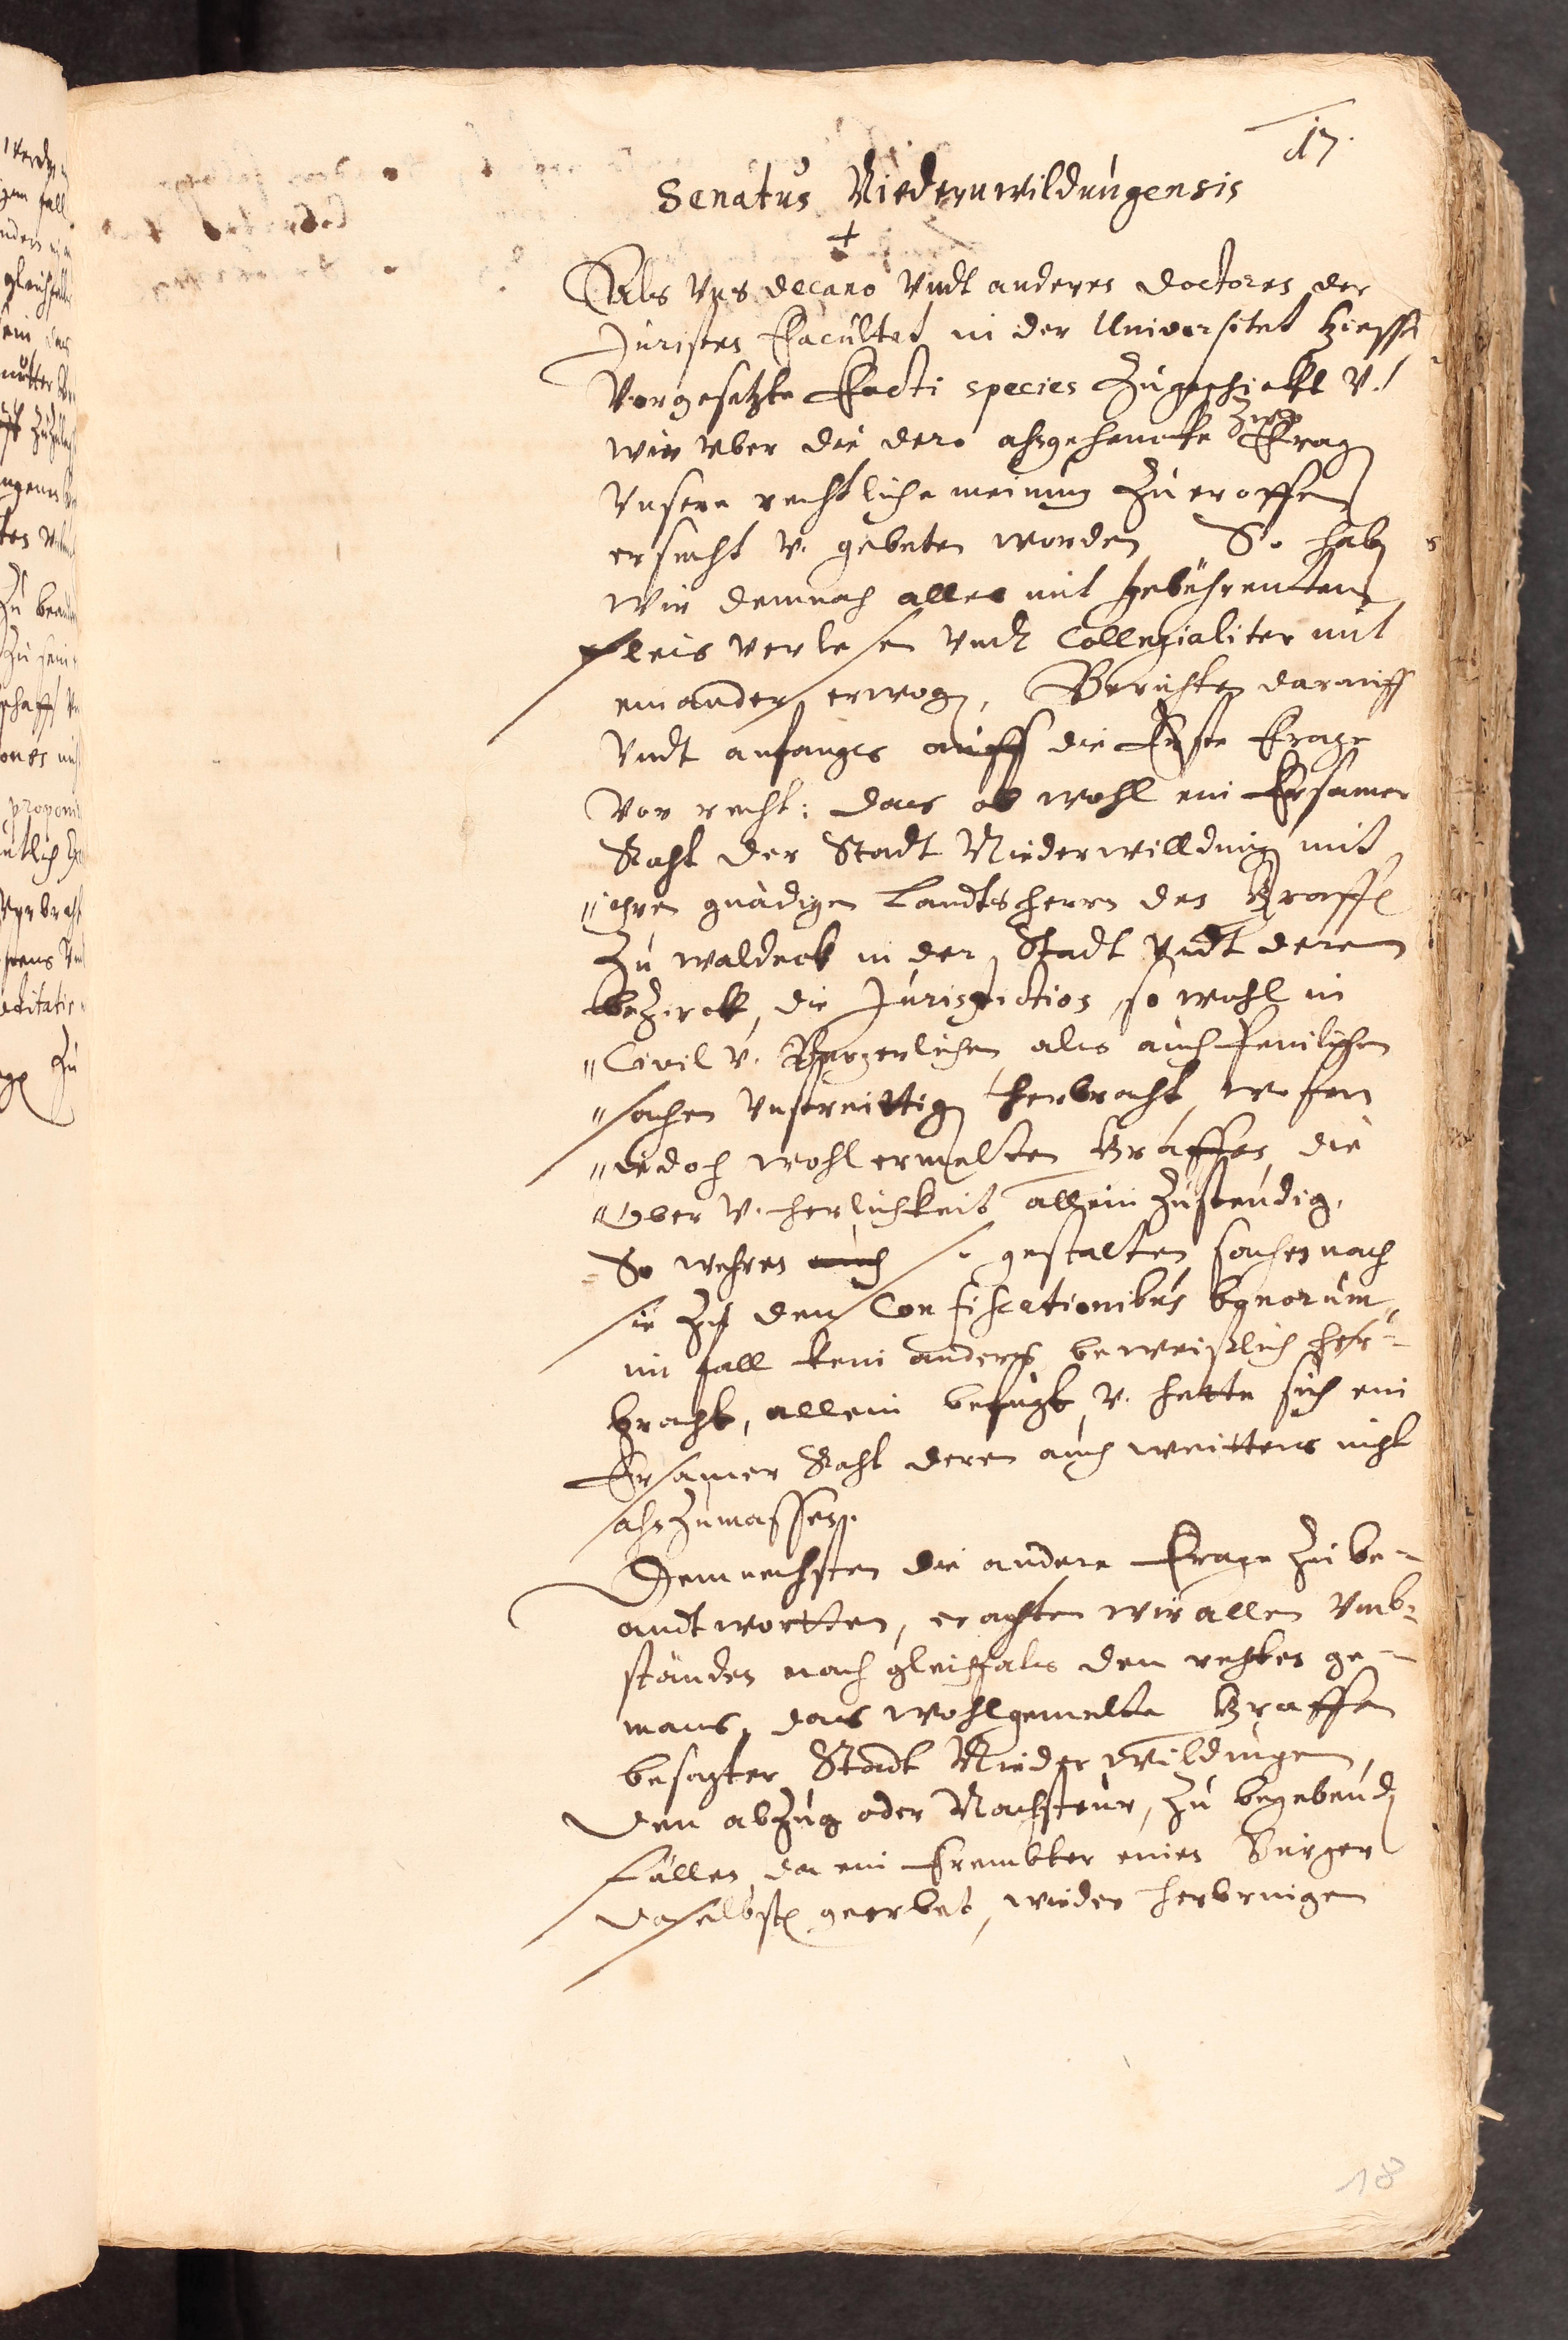 17.
Senatus Niedernwildungensis
+
Als Vns decano Vndt anderen doctoren der
Juristen Facultet in der Universitet Giessen
Vorgesetzte Facti species Zugeschickt v.
wir vber die dero ahngehenckte Zwo Frag
Vnsere rechtliche meinung Zu eroffnen
ersucht v. gebeten worden, So hab
wir demnach alles mit gebührenten
fleis verlesen Vndt Collegialiter mit
einander erwog, Berichten darauff
Vndt anfangs auff die Erste Frage
vor recht: das ob wohl ein Ersamer
Raht der Stadt Niederwilldung mit
"ihren gnädigen Landtsherrn den Graffen
Zu waldeck in der Stadt Vndt deren
bezirck, die Jurisdiction, so wohl in
"Civil v. Burgerlichen, als auch Peinlichen
"sachen Vnstreittig herbracht, wofern
"iedoch wohlermelten Graffen, die
"Ober v. herlichkeit allein Zustendig,
So wehren auch so gestalten sachen nach
sie Zu den Confiscationibus bonorum,
im fall kein anders beweislich her-
bracht, allein befugt, v. hette sich ein
Ersamer Raht deren auch weitters nicht
ahnzumassen.
Demnechsten die andere Frage Zu be-
andtwortten, erachten wir allen Vmb-
ständen nach gleichfals den rechten ge-
mess, das wohlgemelte Graffen
besagter Stadt Nieder Wildungen,
den abzug oder Nachsteur, Zu begebend
fällen, da ein Frembter einen Burger
daselbst geerbet, wieder herbringen
18